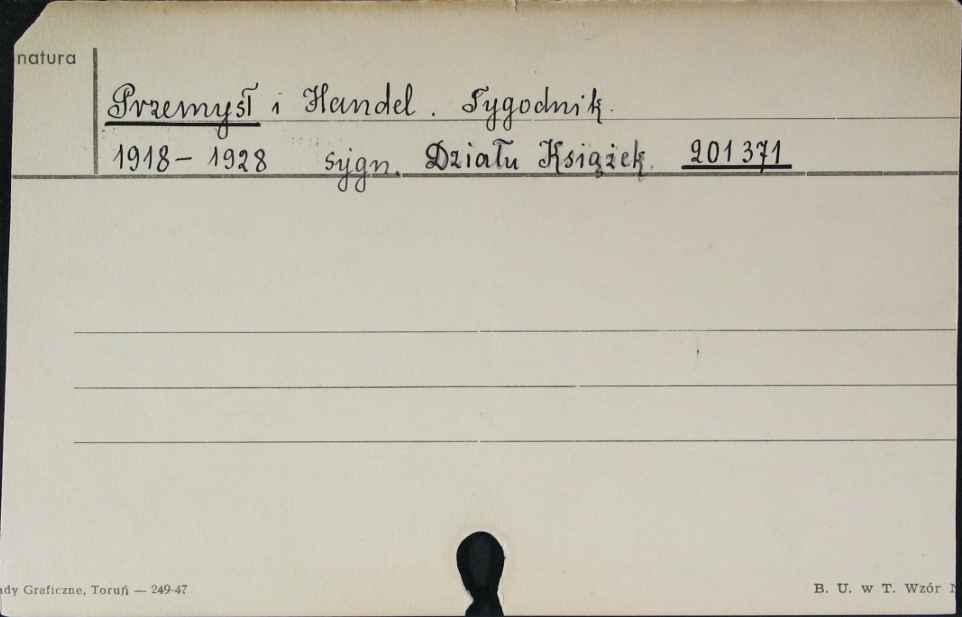 natura
Przemysł i Handel. Tygodnik.
1918 – 1928 sygn. Działu Książek. 201371
ady Graficzne, Toruń — 249-47
B. U. w T. Wzór